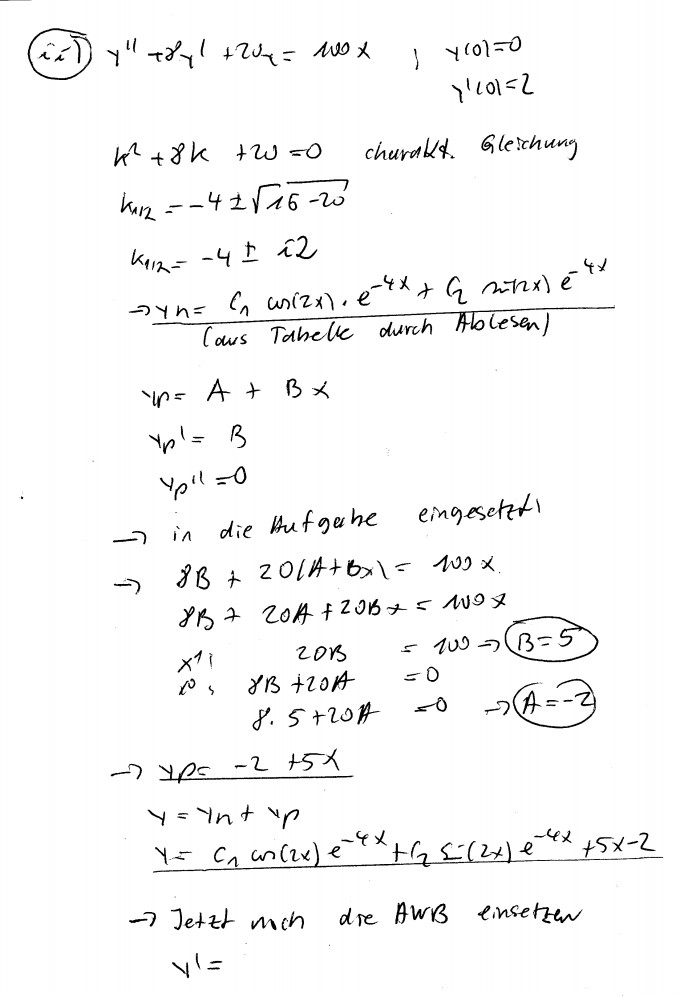 ii) y'' + 8y' + 20y = 100x ; y(0)=0
y'(0)=2
k² + 8k + 20 = 0 charakt. Gleichung
k1/2 = -4 ± √16-20
k1/2 = -4 ± i2
→ yh = C1 cos(2x) · e^-4x + C2 sin(2x) e^-4x
(aus Tabelle durch Ablesen)
yp = A + Bx
yp' = B
yp'' = 0
→ in die Aufgabe eingesetzt:
→ 8B + 20(A+Bx) = 100x
8B + 20A + 20Bx = 100x
x¹: 20B = 100 → B=5
x⁰: 8B + 20A = 0
8·5 + 20A = 0 → A=-2
→ yp = -2 + 5x
y = yh + yp
y = C1 cos(2x) e^-4x + C2 sin(2x) e^-4x + 5x - 2
→ Jetzt noch die AWB einsetzen
y' =